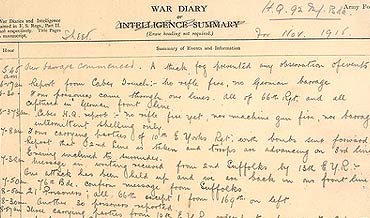 WAR DIARY
H.Q. 92 Inf. Bde.
Army Fo
War Diaries and Intelligence
or
ned in F. S. Regs., Part II.
INTELLIGENCE SUMMARY
nal respectively. Title pages
manuscript.
Sheet
(Erase heading not required).
for Nov. 1916.
Hour
Summary of Events and Information
5.45
Our barrage commenced. A thick fog prevented any observation of events
Report from Caber Trench:- No rifle fire, no German barrage
prisoners came through our lines. All of 66th Regt. and all
captured in German front line
Caber H.Q. report:- no rifle fire yet, nor machine gun fire, nor barrage
intermittent shelling only
Four carrying parties of 10th E Yorks Regt. with bombs sent forward
Report that 2nd line is taken and troops are advancing on 3rd line
Enemy inclined to surrender.
Message in writing received from 2nd Suffolks by 13th E.Y.R:-
One attack has been held up and we are back in our front line
76 Bde. confirm message from Suffolks
21 Prisoners; all 66th except 1 from 169th on left.
Another 30 prisoners reported
Three carrying parties from 10th E.Y.R.